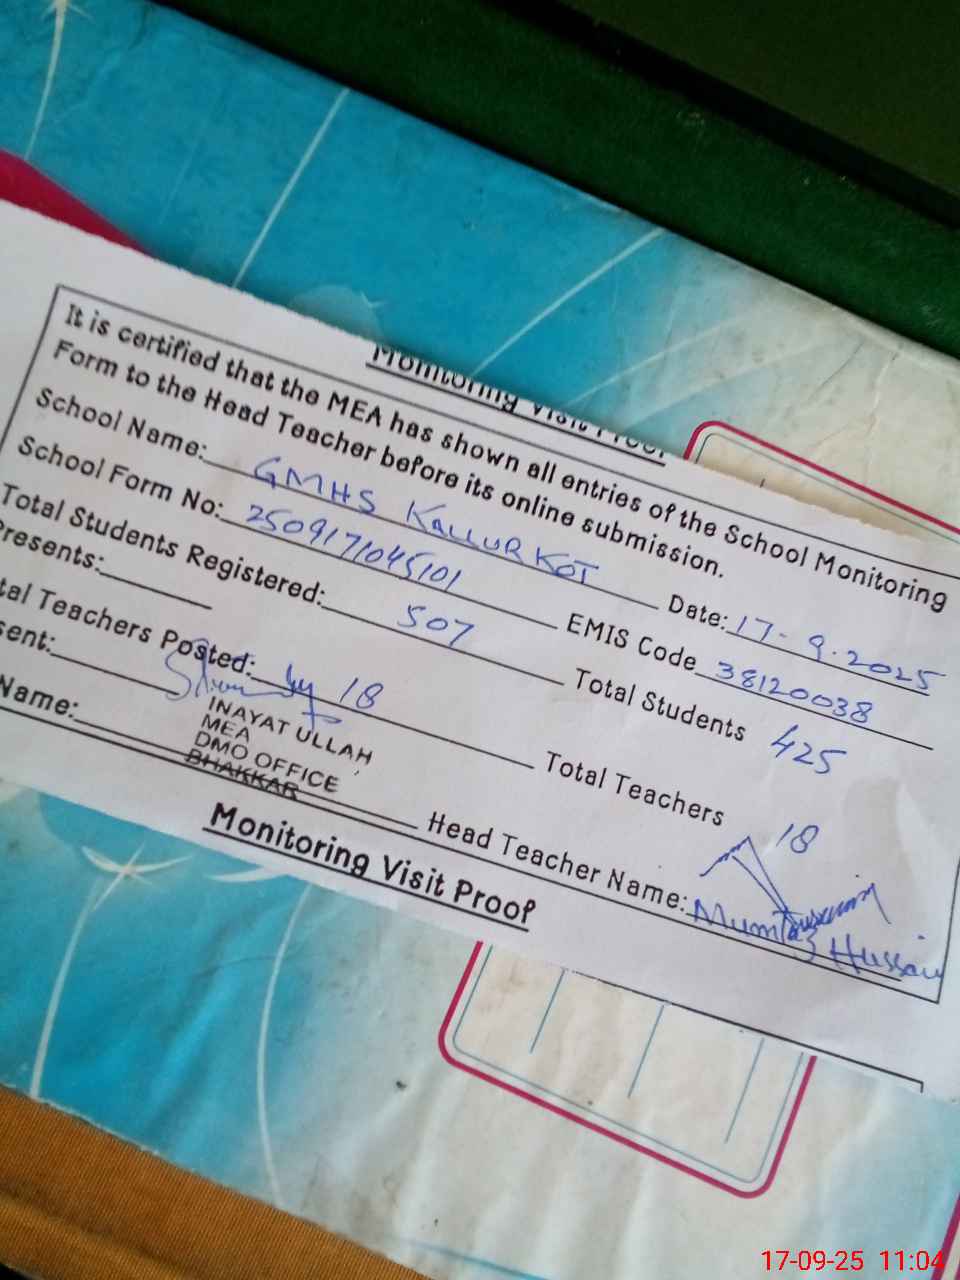 Monitoring Visit Proof
It is certified that the MEA has shown all entries of the School Monitoring
Form to the Head Teacher before its online submission.
School Name: GMHS KALLURKOT Date: 17-9.2025
School Form No: 2509171045101 EMIS Code 38120038
Total Students Registered: 507 Total Students
Presents: 425
tal Teachers Posted: 18 Total Teachers
sent: 18
Name: INAYAT ULLAH
MEA
DMO OFFICE
BHAKKAR
Head Teacher Name: Mumtaz Hussain
Monitoring Visit Proof
17-09-25 11:04